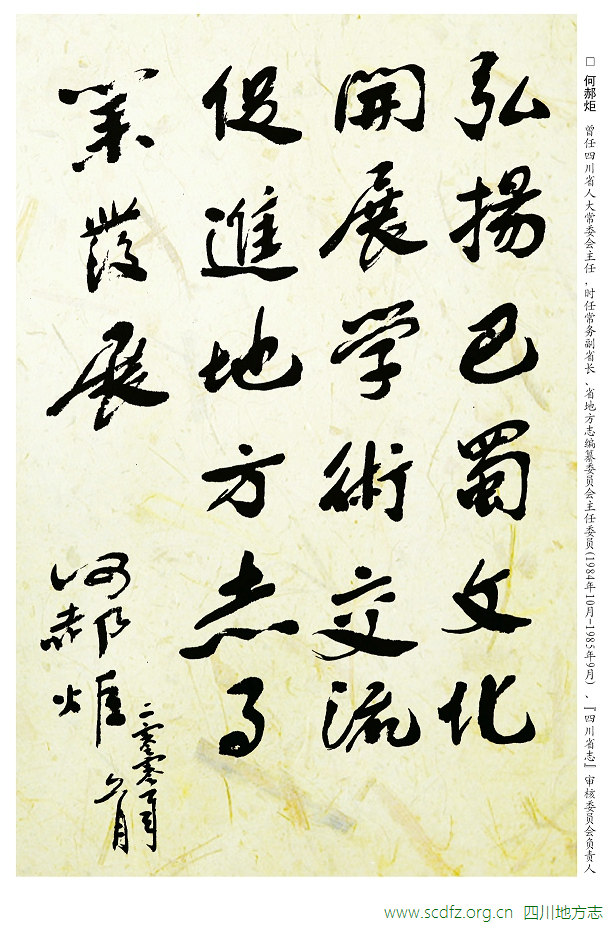 弘揚巴蜀文化
開展学術交流
促進地方志事
業發展
何郝炬
二零零零年
六月
□ 何郝炬 曾任四川省人大常委会主任，时任常务副省长、省地方志编纂委员会主任委员(1984年10月-1985年9月)、『四川省志』审核委员会负责人
www.scdfz.org.cn 四川地方志